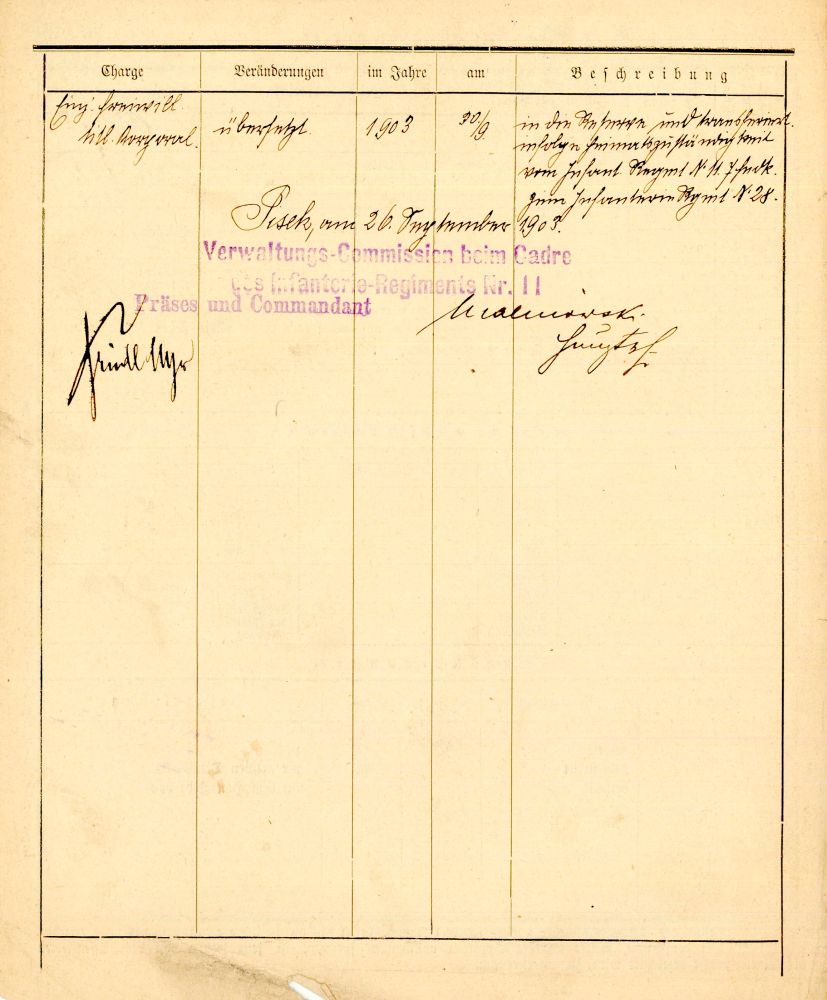 Charge Veränderungen im Jahre am Beschreibung
Einj. Freiwill.
titl. Korporal. übersetzt. 1903 30/9. in die Reserve und transferirt
infolge Heimatszuständigkeit
vom Infant. Regmt Nr 11.
zum Infanterie Rgmt Nr 28.
Pisek, am 26. September 1903.
Verwaltungs-Commission beim Cadre
des Infanterie-Regiments Nr. 11
Präses und Commandant